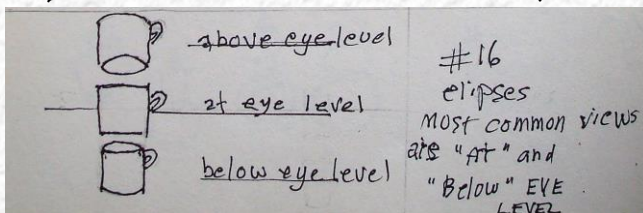 above eye level
at eye level
below eye level
#16
elipses
most common views
are "At" and
"Below" EYE
LEVEL